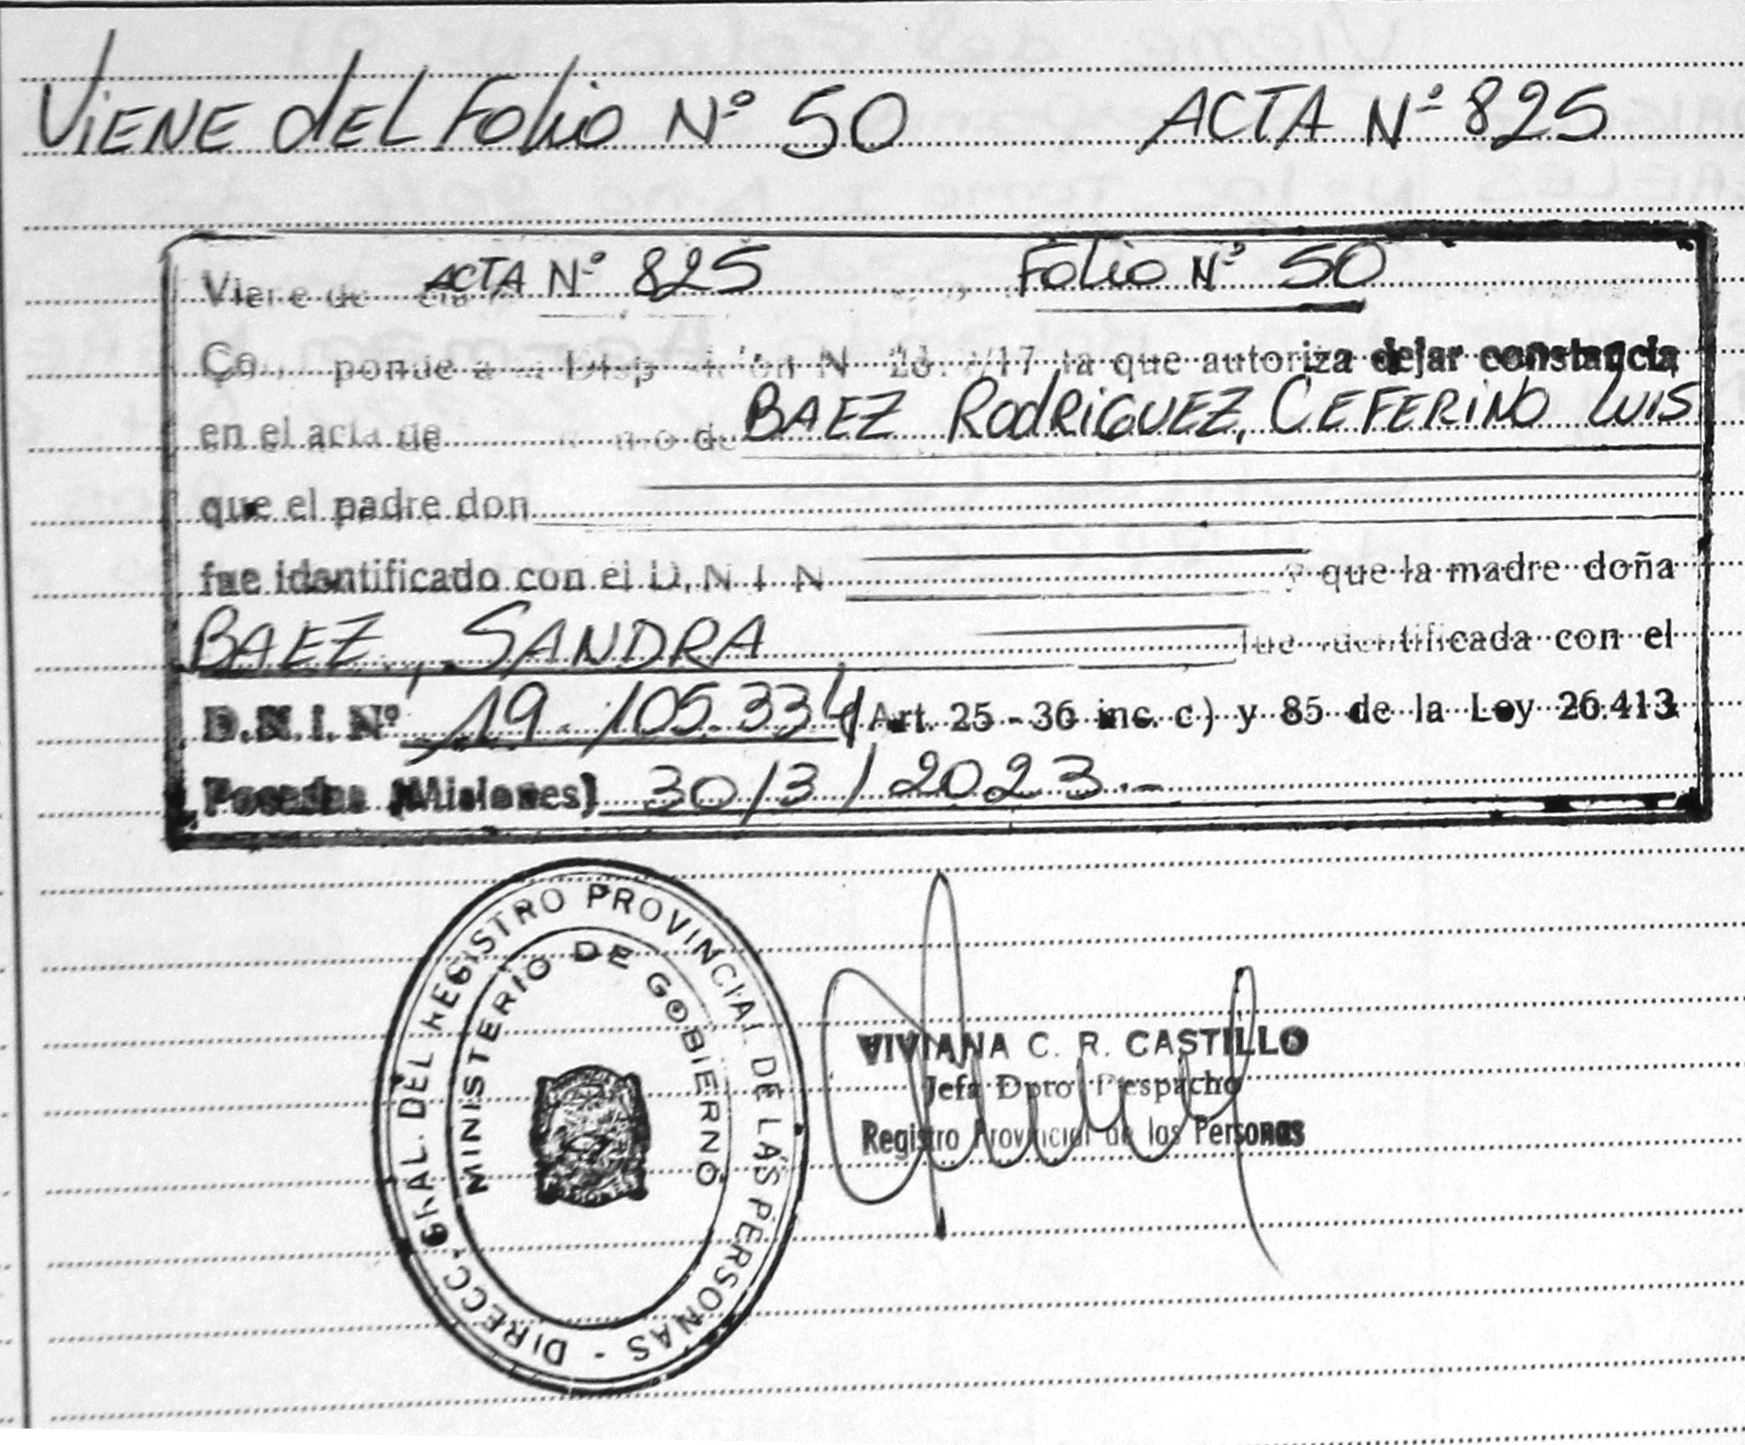 Viene del Folio Nº 50 ACTA Nº 825
Viene de ACTA Nº 825 Folio Nº 50
ponde a la N /17 la que autoriza dejar constancia
en el acta de de BAEZ RodRiGUEZ, CEFERINO LUIS
que el padre don
fue identificado con el D.N.I. N y que la madre doña
BAEZ, SANDRA fue identificada con el
D.N.I. Nº 19.105.334 (Art. 25 - 36 inc. c) y 85 de la Ley 26.413
Posadas (Misiones) 30/3/2023.-
DIRECC. GRAL. DEL REGISTRO PROVINCIAL DE LAS PERSONAS -
MINISTERIO DE GOBIERNO
VIVIANA C. R. CASTILLO
Jefa Dpto. Despacho
Registro Provincial de las Personas